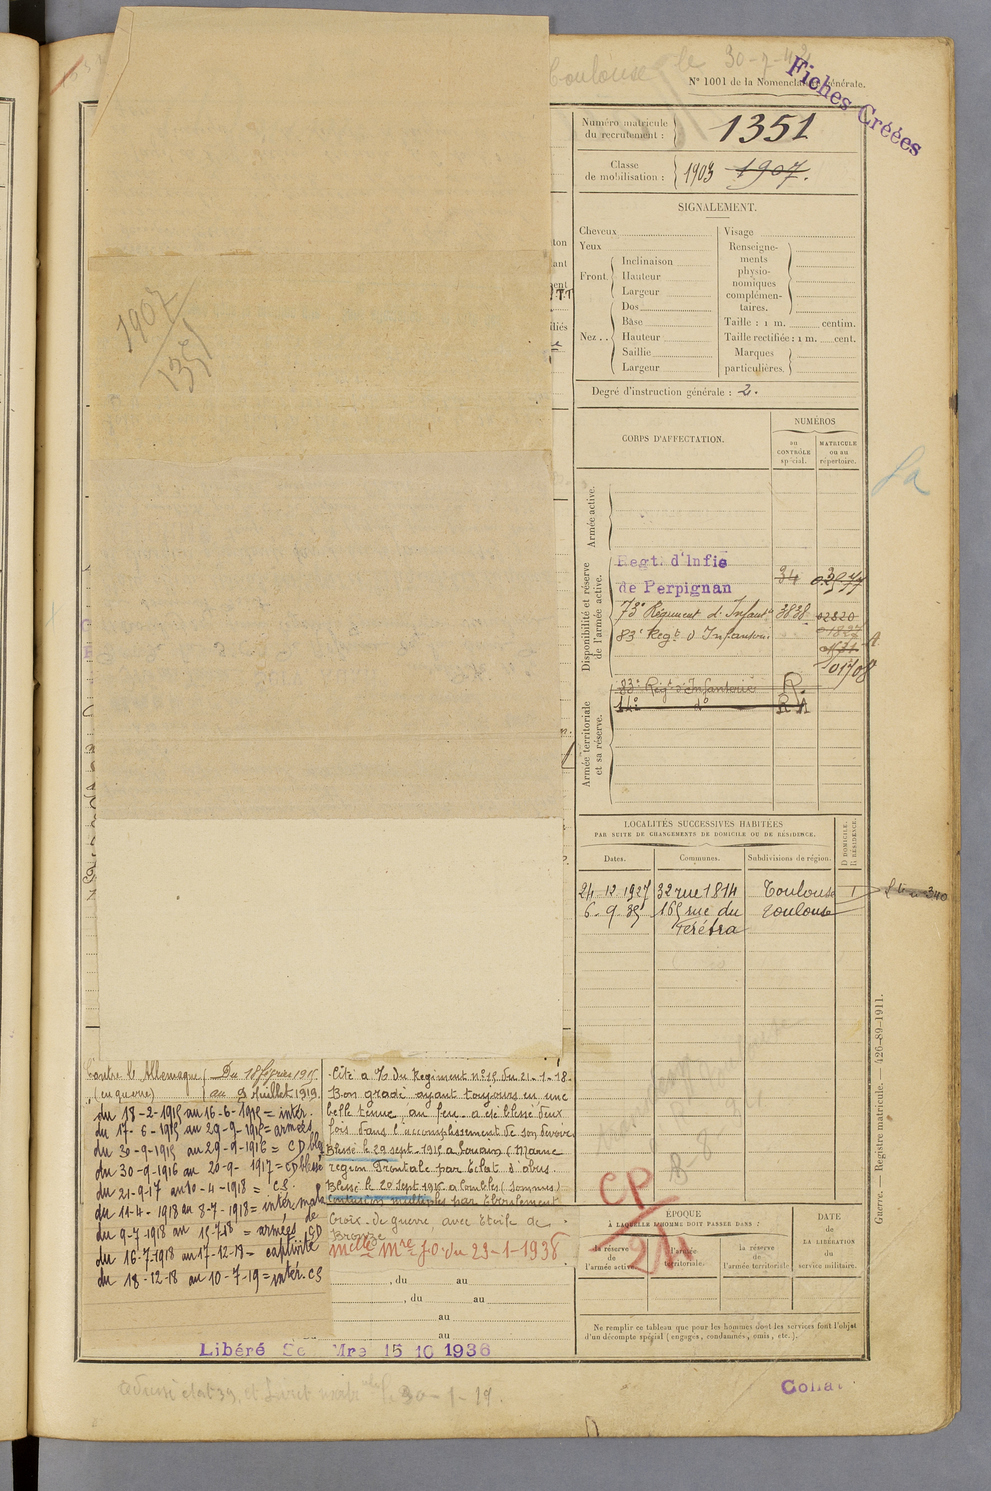 Toulouse le 30-7-42
N° 1001 de la Nomenclature générale.
Fiches Créées
Numéro matricule
du recrutement :
1351
Classe
de mobilisation :
1903 1907.
1907
1351
SIGNALEMENT.
Cheveux
Yeux
Front
Inclinaison
Hauteur
Largeur
Nez
Dos
Base
Hauteur
Saillie
Largeur
Visage
Renseigne-
ments
physio-
nomiques
complémen-
taires.
Taille : 1 m. centim.
Taille rectifiée : 1 m. cent.
Marques
particulières.
Degré d'instruction générale : 2.
CORPS D'AFFECTATION.
NUMÉROS
au
CONTRÔLE
spécial.
MATRICULE
ou au
répertoire.
Armée active.
Disponibilité et réserve
de l'armée active.
Regt. d'Infie
de Perpignan
34
73e Régiment d'Infantie 3838 02820
83e Regt d'Infanterie
01708
Armée territoriale
et sa réserve.
83e Regt d'Infanterie R.
14e do
LOCALITÉS SUCCESSIVES HABITÉES
PAR SUITE DE CHANGEMENTS DE DOMICILE OU DE RÉSIDENCE.
D. DOMICILE.
R. RÉSIDENCE.
Dates.
Communes.
Subdivisions de région.
24-12-1927 32 rue 1814 Toulouse
6-9-35 165 rue du Toulouse
Férétra
CP
Contre l'Allemagne
(en guerre)
Du 18 février 1915
au 9 Juillet 1919.
du 18-2-1915 au 16-6-1915 = intér.
du 17-6-1915 au 29-9-1915 = armées
du 30-9-1915 au 29-9-1916 = CD blé
du 30-9-1916 au 20-9-1917 = CD blessé
du 21-9-17 au 10-4-1918 = CS.
du 11-4-1918 au 8-7-1918 = intér mal
du 9-7-1918 au 15-7-18 = armées CD
du 16-7-1918 au 17-12-18 = captivité
du 18-12-18 au 10-7-19 = intér. CS
Cité à l'O du Regiment n° 15 du 21-1-18.
Bon gradé ayant toujours eu une
belle tenue au feu a été blessé deux
fois dans l'accomplissement de son devoir
Blessé le 29 sept-1915 a Souain (Marne
région Frontale par Eclat d'obus.
Blessé le 20 Sept 1916 a Combles (Somme)
Contusion multiples par Eboulement
Croix de guerre, avec Etoile de
Bronze
Mre 70 du 23-1-1938
, du au
, du au
au
au
Libéré Se Mre 15 10 1936
ÉPOQUE
À LAQUELLE L'HOMME DOIT PASSER DANS :
la réserve
de
l'armée active.
l'armée
territoriale.
la réserve
de
l'armée territoriale
DATE
de
LA LIBÉRATION
du
service militaire.
Ne remplir ce tableau que pour les hommes dont les services font l'objet
d'un décompte spécial (engagés, condamnés, omis, etc.).
Guerre. — Registre matricule. — 426-89-1911.